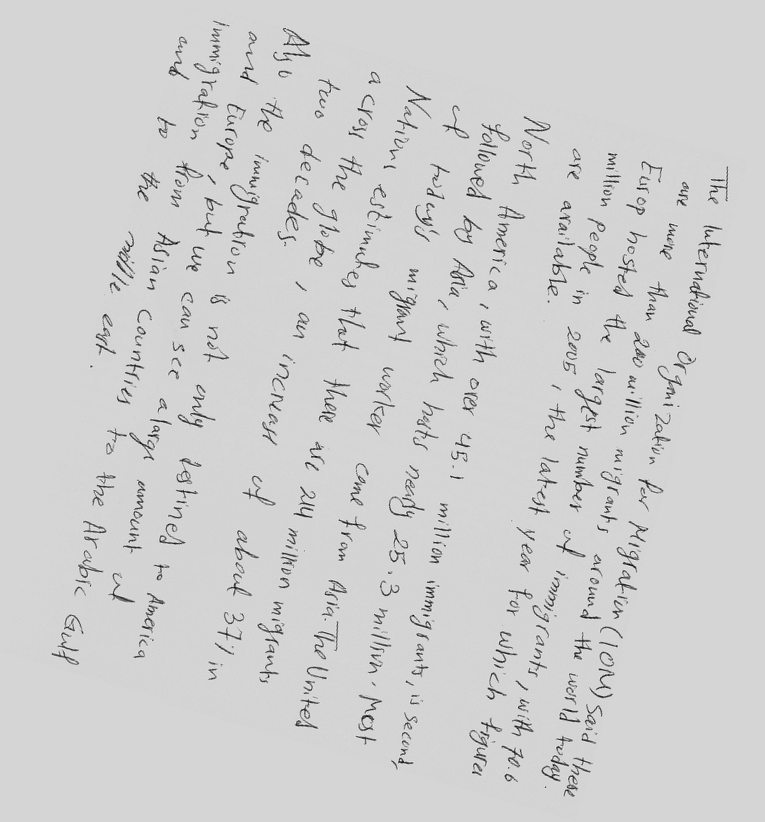 The International Organization for Migration (IOM) said there
are more than 200 million migrants around the world today.
Europ hosted the largest number of immigrants, with 70.6
million people in 2005, the latest year for which figures
are available.
North America, with over 45.1 million immigrants, is second,
followed by Asia, which hosts nearly 25.3 million. Most
of today's migrant worker came from Asia. The United
Nations estimates that there are 214 million migrants
across the globe, an increase of about 37% in
two decades.
Also the immigration is not only destined to America
and Europe, but we can see a large amount of
immigration from Asian countries to the Arabic Gulf
and to the middle east.